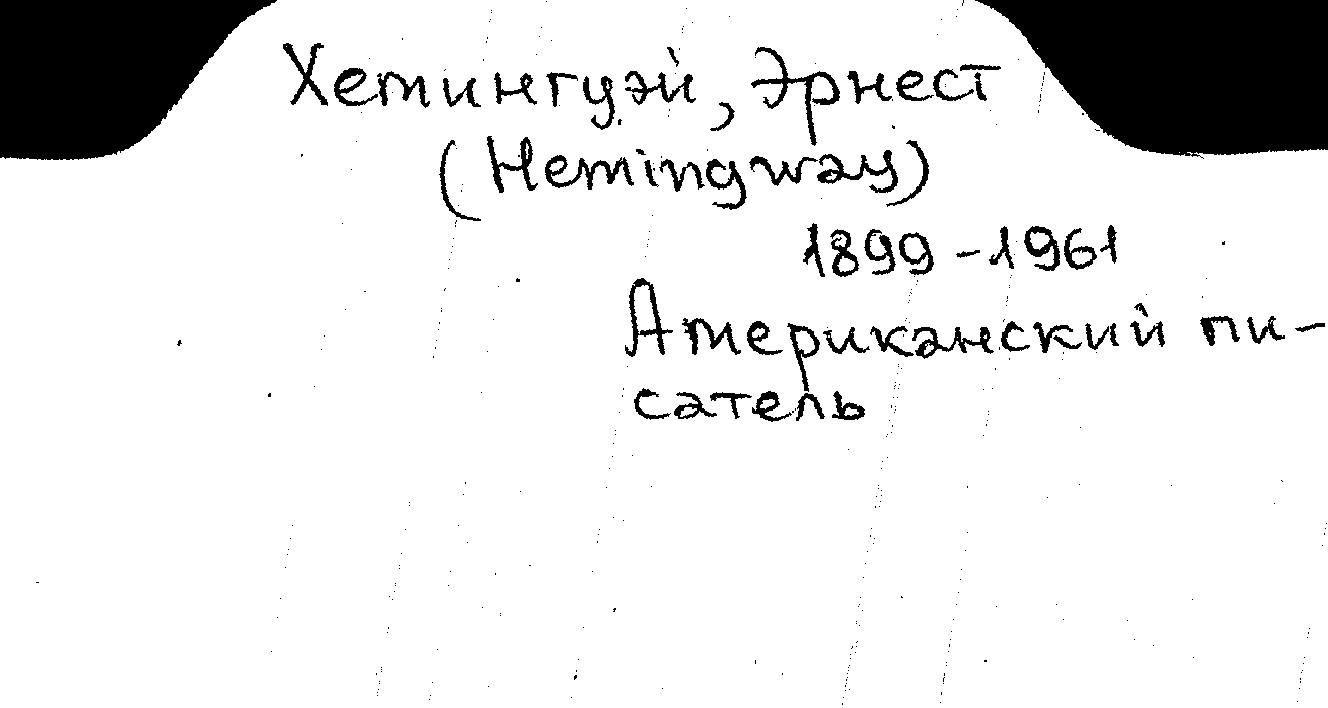 Хемингуэй, Эрнест
(Hemingway)
1899-1961
Американский пи-
сатель